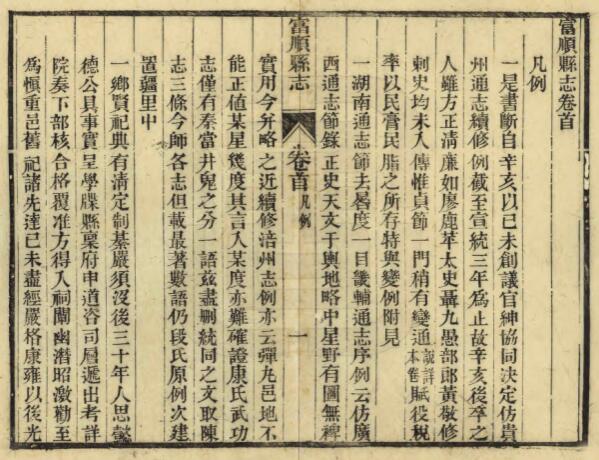 富順縣志卷首
凡例
一是書斷自辛亥以已未創議官紳協同決定仿貴
州通志續修例截至宣統三年為止故辛亥後卒之
人雖方正清廉如廖鹿苹太史聶九愚部郎黃敬修
刺史均未入傳惟貞節一門稍有變通說詳本卷賦役稅
率以民膏民脂之所存特與變例附見
一湖南通志節去晷度一目畿輔通志序例云仿廣
西通志節錄正史天文于輿地略中星野有圖無裨
富順縣志 卷首 凡例 一
實用今并略之近續修涪州志例亦云彈丸邑地不
能正值某星幾度其言入某度亦難確證康氏武功
志僅有秦當井鬼之分一語茲盡刪統同之文取陳
志三條今師各志但載最著數語仍段氏原例次建
置疆里中
一鄉賢祀典有清定制綦嚴須沒後三十年人思懿
德公具事實呈學牒縣稟府申道咨司層遞出考詳
院奏下部核合格覆准方得入祠闡幽潛昭激勸至
為慎重邑舊祀諸先達已未盡經嚴格康雍以後光